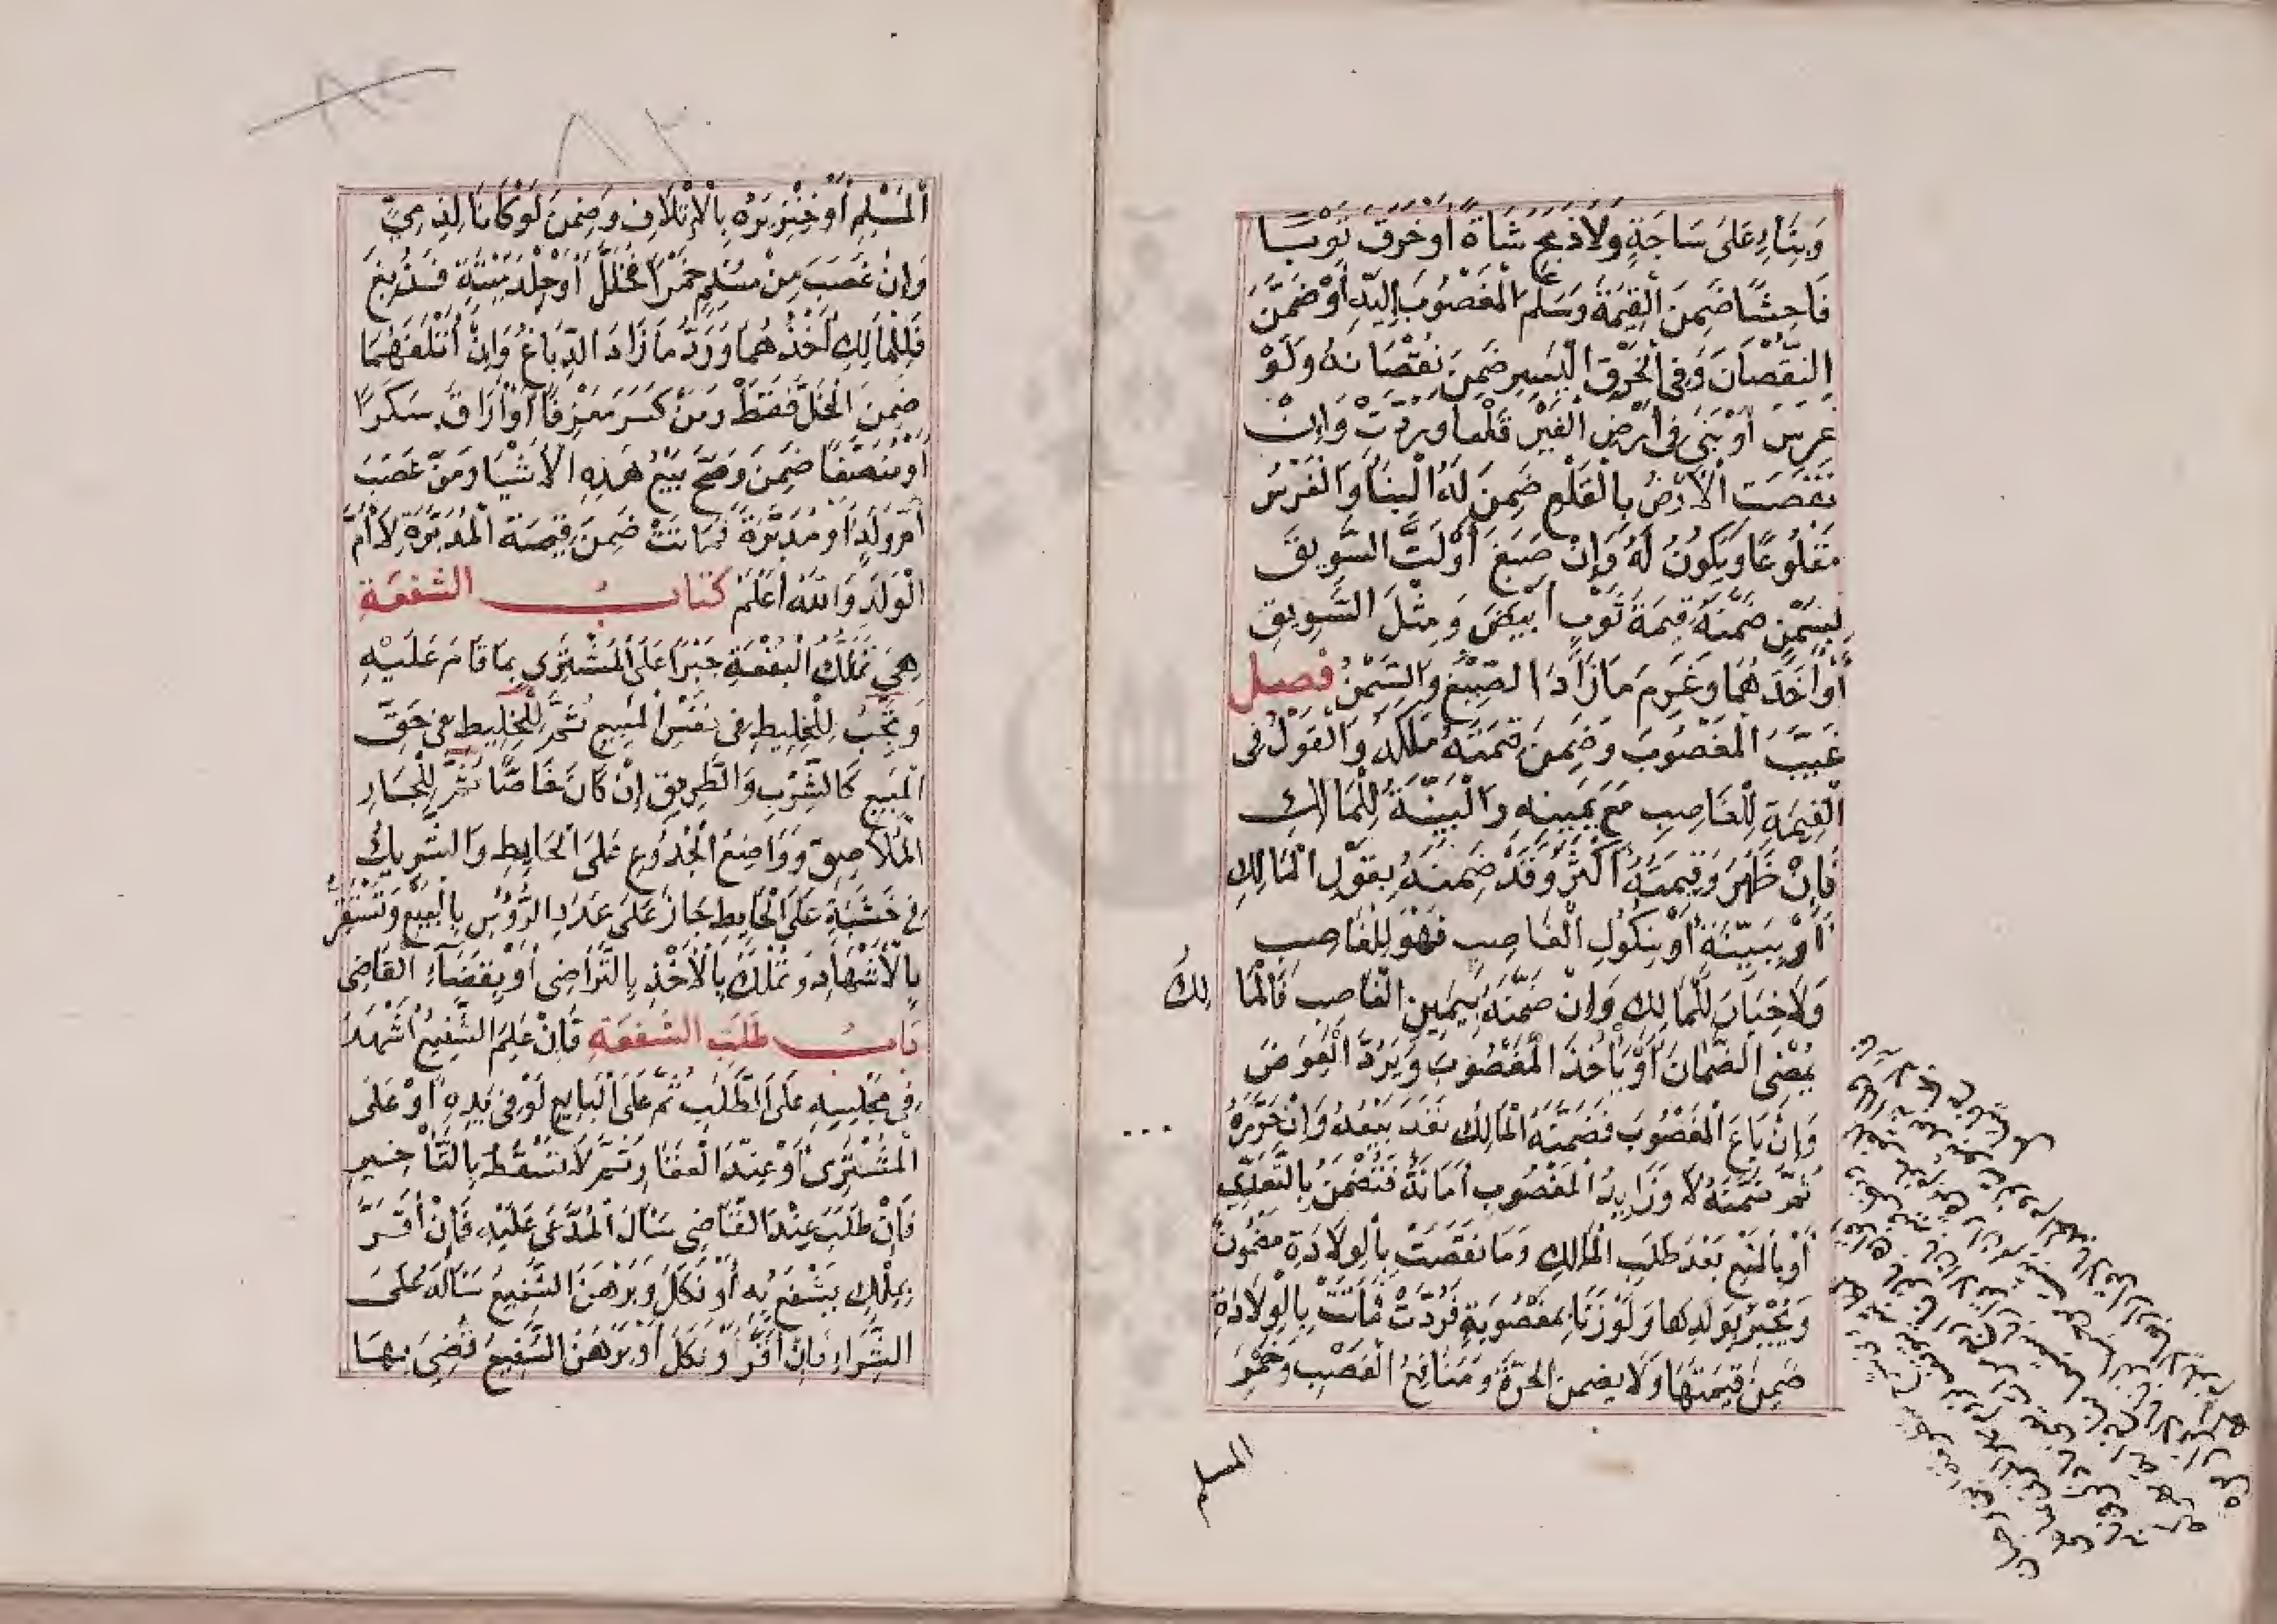 وَبِنَاءٍ عَلَى سَاجَةٍ وَلَوْ ذَبَحَ شَاةً أَوْ خَرَقَ ثَوْبًا
فَاحِشًا ضَمِنَ الْقِيمَةَ وَسَلَّمَ الْمَغْصُوبَ إِلَيْهِ أَوْ ضَمَّنَ
النُّقْصَانَ وَفِي الْخَرْقِ الْيَسِيرِ ضَمِنَ نُقْصَانَهُ وَلَوْ
غَرَسَ أَوْ بَنَى فِي أَرْضِ الْغَيْرِ قَلَعَا وَرُدَّتْ وَإِنْ
نَقَصَتِ الْأَرْضُ بِالْقَلْعِ ضَمِنَ لَهُ الْبِنَاءَ وَالْغَرْسَ
مَقْلُوعًا وَيَكُونُ لَهُ وَإِنْ صَبَغَ أَوْ لَتَّ السَّوِيقَ
بِسَمْنٍ ضَمَّنَهُ قِيمَةَ ثَوْبٍ أَبْيَضَ وَمِثْلَ السَّوِيقِ
أَوْ أَخَذَهُمَا وَغَرِمَ مَا زَادَ الصِّبْغُ وَالسَّمْنُ فصل
غَيَّبَ الْمَغْصُوبَ وَضَمِنَ قِيمَتَهُ مَلَكَهُ وَالْقَوْلُ فِي
الْقِيمَةِ لِلْغَاصِبِ مَعَ يَمِينِهِ وَالْبَيِّنَةُ لِلْمَالِكِ
فَإِنْ ظَهَرَ وَقِيمَتُهُ أَكْثَرُ وَقَدْ ضَمِنَهُ بِقَوْلِ الْمَالِكِ
أَوْ بِبَيِّنَةٍ أَوْ بِنُكُولِ الْغَاصِبِ فَهُوَ لِلْغَاصِبِ
وَلَا خِيَارَ لِلْمَالِكِ وَإِنْ ضَمَّنَهُ بِيَمِينِ الْغَاصِبِ فَالْمَا لِكُ
يُمْضِي الضَّمَانَ أَوْ يَأْخُذُ الْمَغْصُوبَ وَيَرُدُّ الْعِوَضَ
وَإِنْ بَاعَ الْمَغْصُوبَ فَضَمَّنَهُ الْمَالِكُ نَفَذَ بَيْعُهُ وَإِنْ حَرَّرَهُ
ثُمَّ ضَمَّنَهُ لَا وَزَايِدُ الْمَغْصُوبِ أَمَانَةٌ فَتُضْمَنُ بِالتَّعَدِّي
أَوْ بِالْمَنْعِ بَعْدَ طَلَبِ الْمَالِكِ وَمَا نَقَصَتْ بِالْوِلَادَةِ مَضْمُونٌ
وَيُجْبَرُ بِوَلَدِهَا وَلَوْ زَنَا بِمَغْصُوبَةٍ فَرُدَّتْ فَمَاتَتْ بِالْوِلَادَةِ
ضَمِنَ قِيمَتَهَا وَلَا يضمن الحرّة وَمَنَافِعَ الْغَصْبِ وَخَمْرَ
المسلم
٨٢
٨٢
الْمُسْلِمِ أَوْ خِنْزِيرَهُ بِالْإِتْلَافِ وَضَمِنَ لَوْ كَانَا لِذِمِّيٍّ
وَإِنْ غَصَبَ مِنْ مُسْلِمٍ خَمْرًا فَخَلَّلَ أَوْ جِلْدَ مَيْتَةٍ فَدُبِغَ
فَلِلْمَالِكِ أَخْذُهُمَا وَرَدُّ مَا زَادَ الدِّبَاغُ وَإِنْ أَتْلَفَهُمَا
ضَمِنَ الْخَلَّ فَقَطْ وَمَنْ كَسَرَ مَعْزِفًا أَوْ أَرَاقَ سَكَرًا
أَوْ مُنَصَّفًا ضَمِنَ وَصَحَّ بَيْعُ هَذِهِ الْأَشْيَا وَمَنْ غَصَبَ
أُمَّ وَلَدٍ أَوْ مُدَبَّرَةً فَمَاتَتْ ضَمِنَ قِيمَةَ الْمُدَبَّرَةِ لَا أُمِّ
الْوَلَدِ وَاللهُ أَعْلَمُ كتاب الشفعة
هِيَ تَمَلُّكُ الْبُقْعَةِ جَبْرًا عَلَى الْمُشْتَرِي بِمَا قَامَ عَلَيْهِ
وَتَجِبُ لِلْخَلِيطِ فِي نَفْسِ الْمَبِيعِ ثُمَّ لِلْخَلِيطِ فِي حَقِّ
الْمَبِيعِ كَالشِّرْبِ وَالطَّرِيقِ إِنْ كَانَ خَاصًّا ثُمَّ لِلْجَارِ
الْمُلَاصِقِ وَوَاضِعُ الْجُذُوعِ عَلَى الْحَايِطِ وَالشَّرِيكُ
فِي خَشَبَةٍ عَلَى الْحَايِطِ جَارٌ عَلَى عَدَدِ الرُّؤُسِ بِالْبَيْعِ وَتَسْتَقِرُّ
بِالْأَشْهَادِ وَتُمْلَكُ بِالْأَخْذِ بِالتَّرَاضِي أَوْ بِقَضَاءِ الْقَاضِي
باب طلب الشفعة فَإِنْ عَلِمَ الشَّفِيعُ أَشْهَدَ
فِي مَجْلِسِهِ عَلَى الطَّلَبِ ثُمَّ عَلَى الْبَايِعِ لَوْ فِي يَدِهِ أَوْ عَلَى
الْمُشْتَرِي أَوْ عِنْدَ الْعَقَارِ ثُمَّ لَا تَسْقُطُ بِالتَّأْخِيرِ
فَإِنْ طَلَبَ عِنْدَ الْقَاضِي سَأَلَ الْمُدَّعَى عَلَيْهِ فَإِنْ أَقَرَّ
بِمِلْكِ يَشْفَعُ بِهِ أَوْ نَكَلَ وَبَرْهَنَ الشَّفِيعُ سَأَلَهُ عَلَى
الشِّرَاءِ فَإِنْ أَقَرَّ أَوْ نَكَلَ أَوْ بَرْهَنَ الشَّفِيعُ قُضِيَ بِهَا